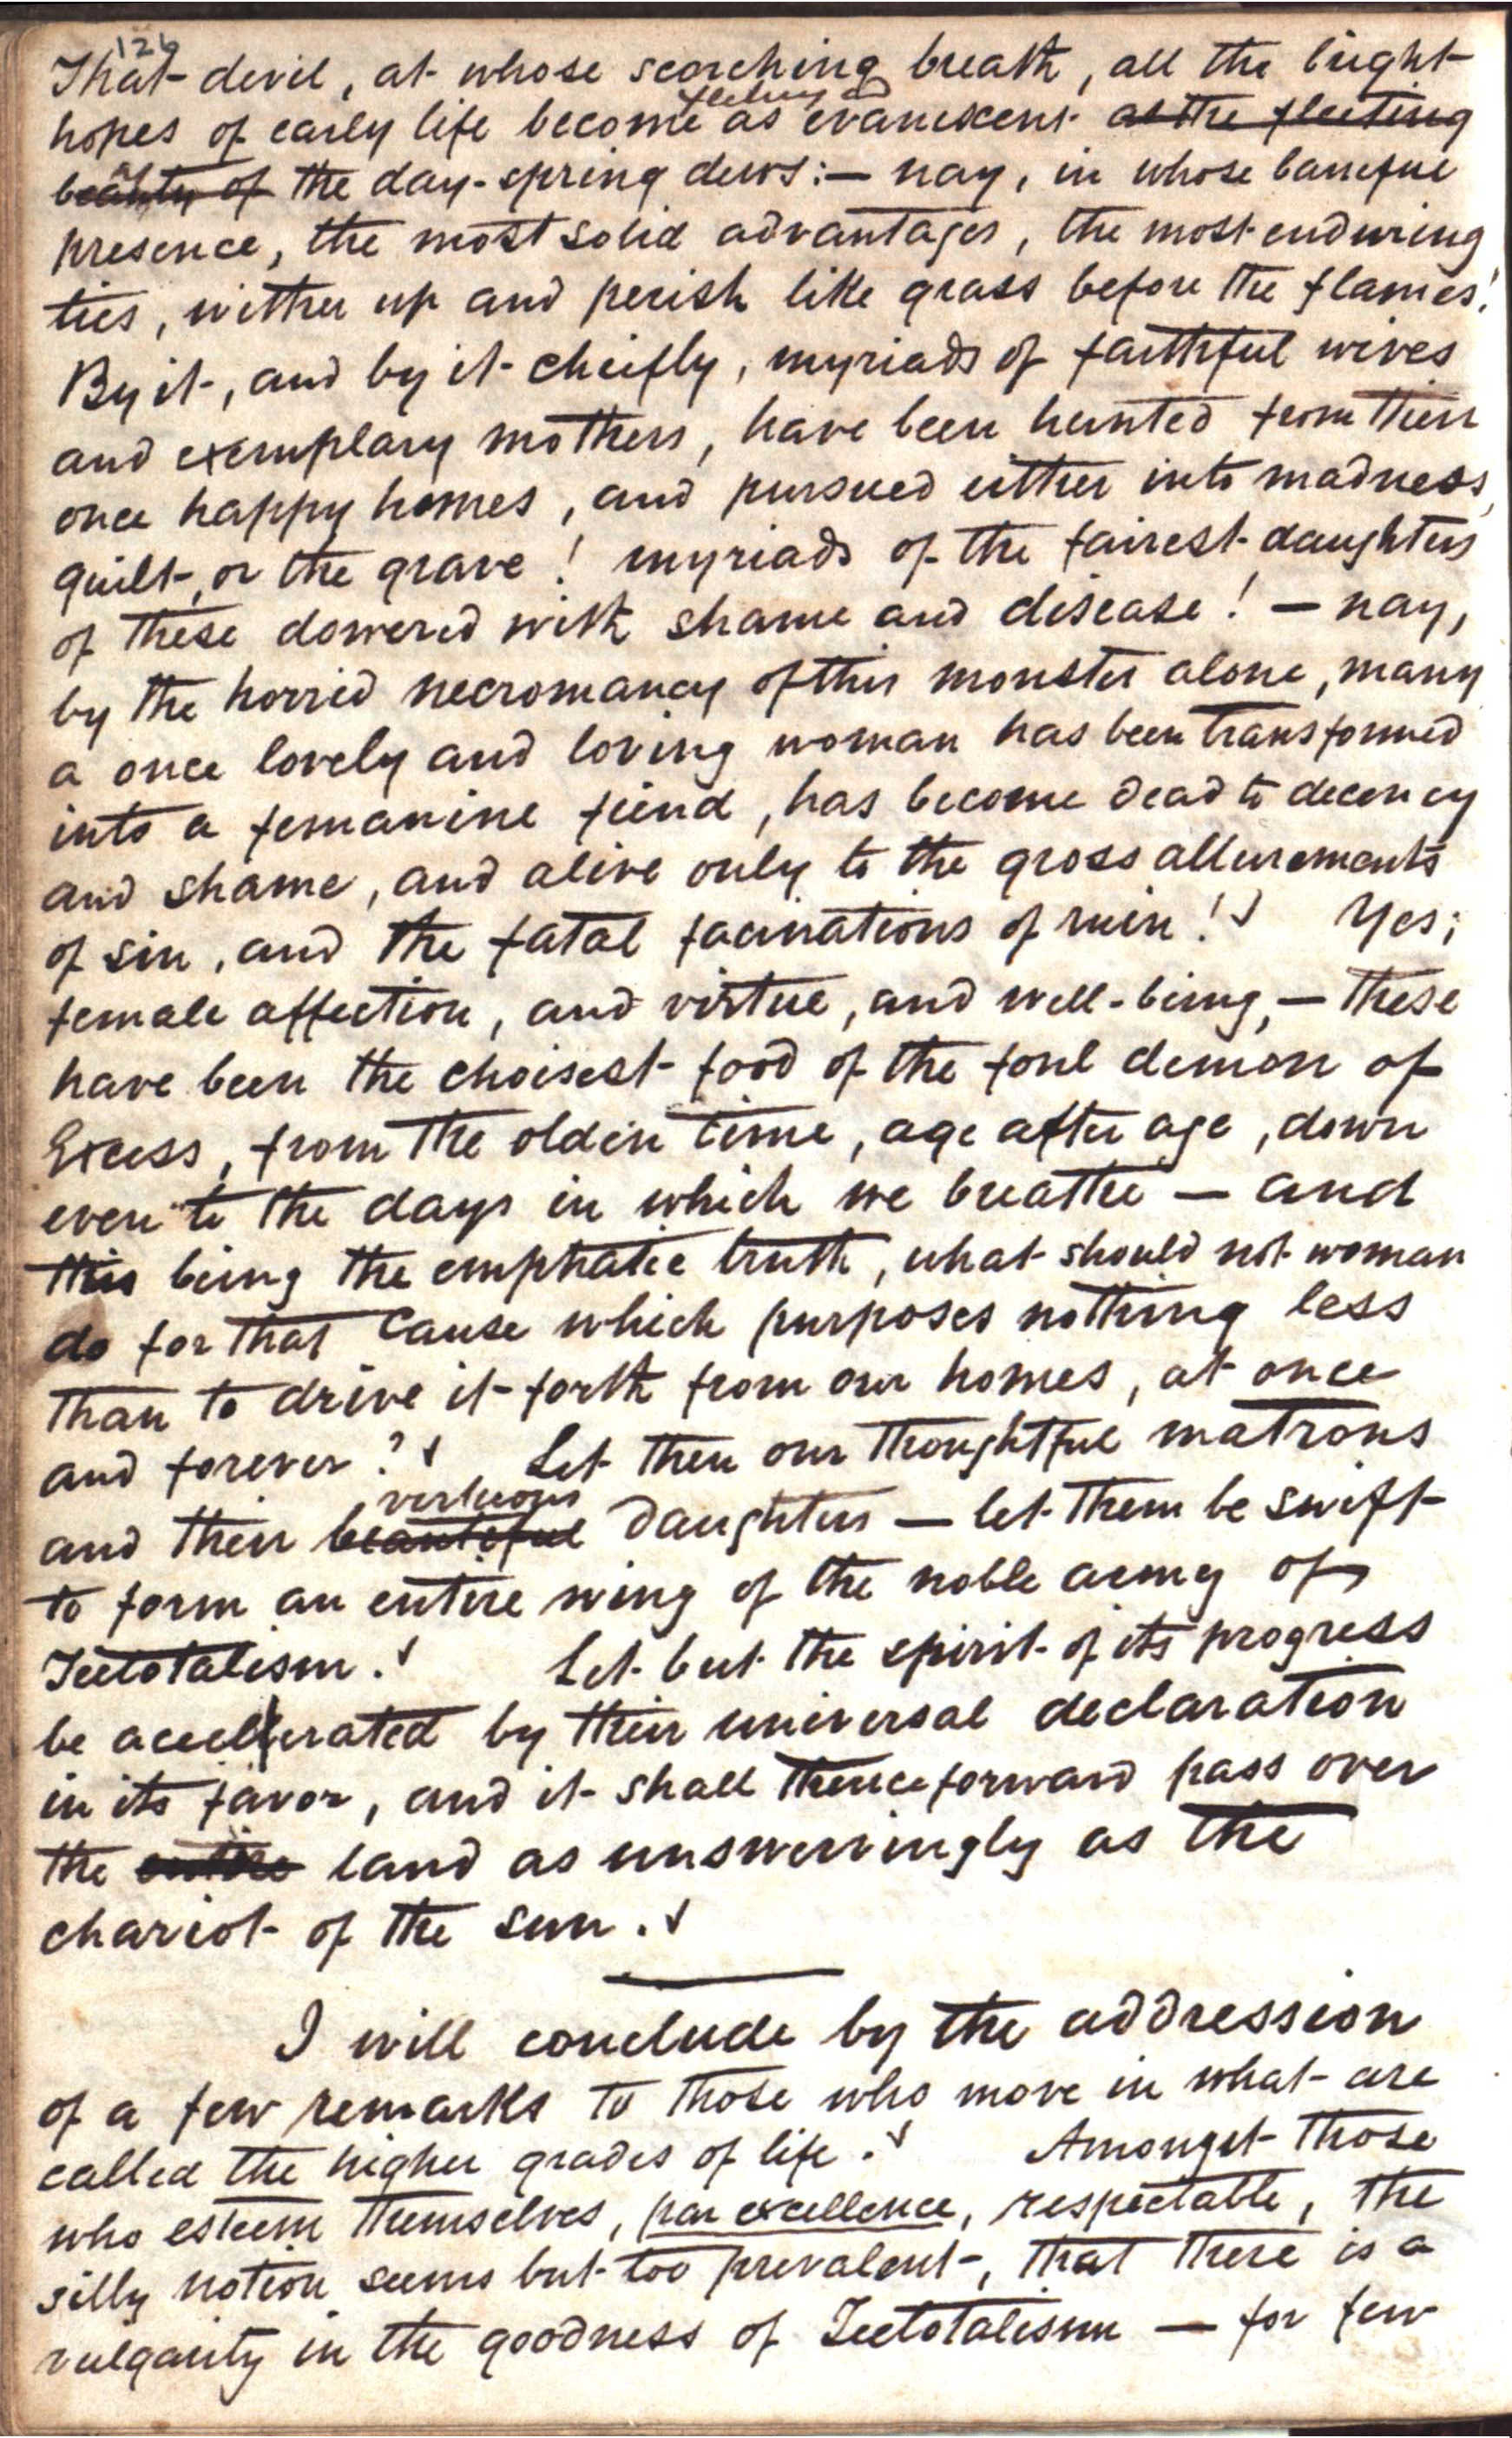 126
That devil, at whose scorching breath, all the bright
hopes of early life become as evanescent as the fleeting
beauty of the day-spring dews:— nay, in whose baneful
presence, the most solid advantages, the most enduring
ties, wither up and perish like grass before the flames!
By it, and by it cheifly, myriads of faithful wives
and exemplary mothers, have been hunted from their
once happy homes, and pursued either into madness,
guilt, or the grave! myriads of the fairest daughters
of these dowered with shame and disease! — nay,
by the horrid necromancy of this monster alone, many
a once lovely and loving woman has been transformed
into a femanine fiend, has become dead to decency
and shame, and alive only to the gross allurements
of sin, and the fatal facinations of ruin! Yes;
female affection, and virtue, and well-being, — these
have been the choisest food of the foul demon of
Excess, from the olden time, age after age, down
even to the days in which we breathe — and
this being the emphatic truth, what should not woman
do for that Cause which purposes nothing less
than to drive it forth from our homes, at once
and forever? Let then our thoughtful matrons
virtuous
and their beautiful daughters — let them be swift
to form an entire wing of the noble army of
Teetotalism. Let but the spirit of its progress
be accellerated by their universal declaration
in its favor, and it shall thenceforward pass over
the entire land as unswervingly as the
chariot of the sun.
I will conclude by the addression
of a few remarks to those who move in what are
called the higher grades of life. Amongst those
who esteem themselves, par excellence, respectable, the
silly notion seems but too prevalent, that there is a
vulgarity in the goodness of Teetotalism — for few